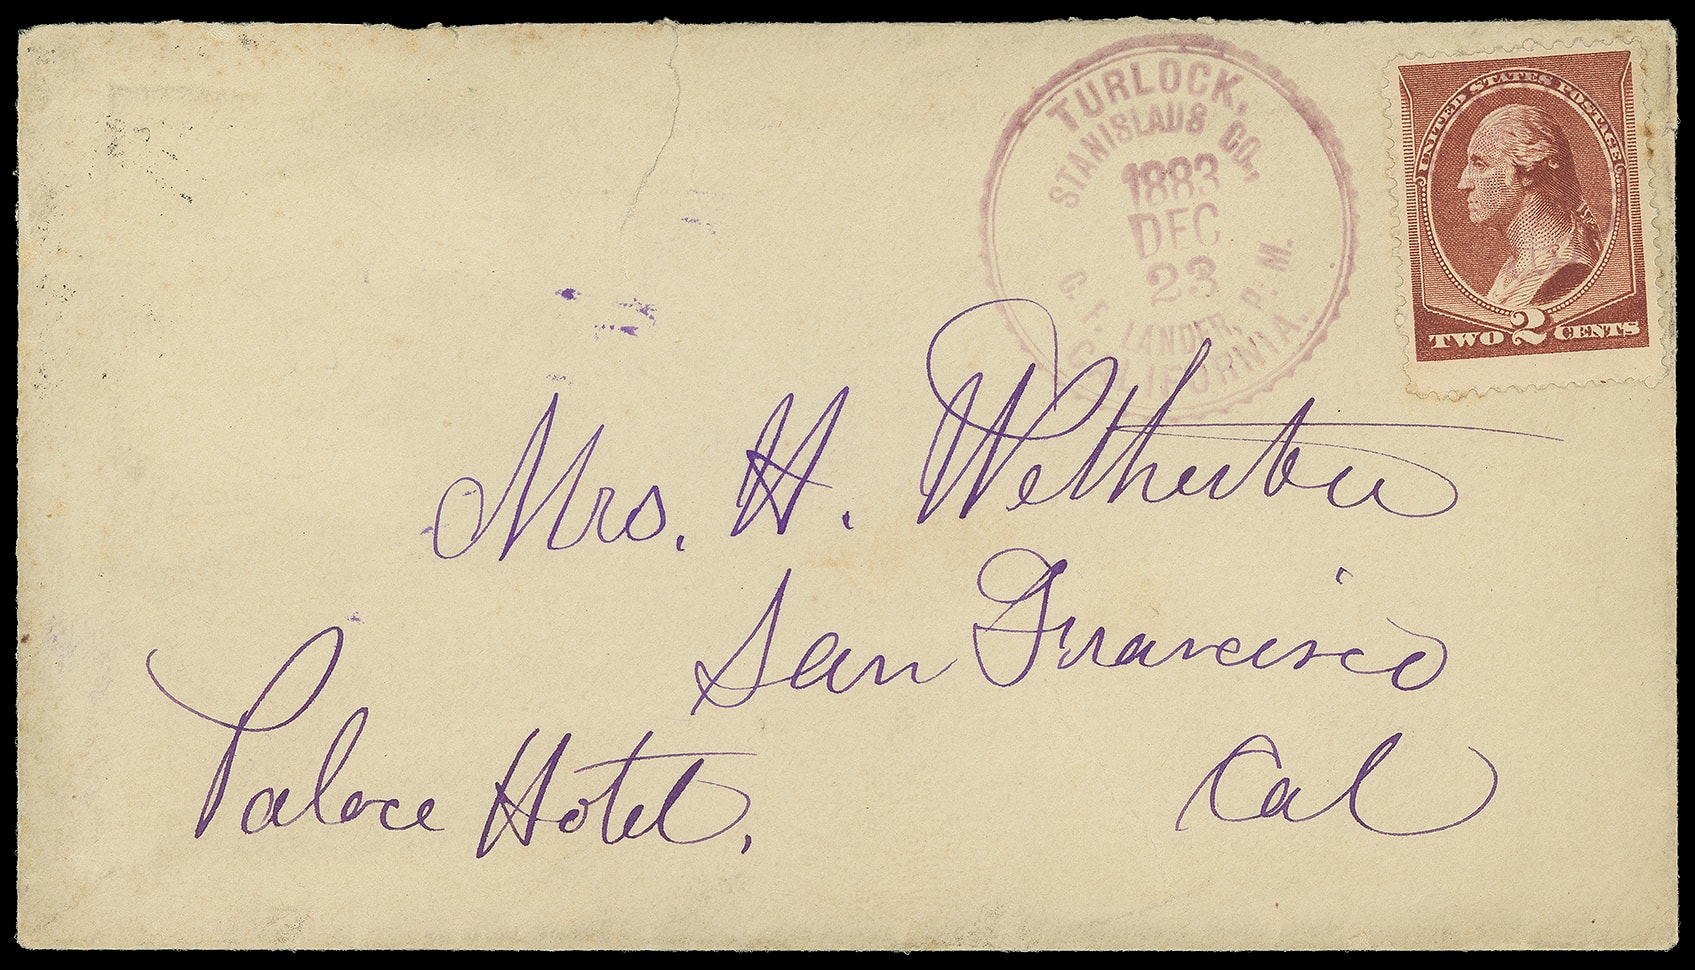 TURLOCK,
STANISLAUS CO.,
1883
DEC
23
C. F. LANDER, P. M.
CALIFORNIA.
UNITED STATES POSTAGE
TWO 2 CENTS
Mrs. H. Wetherbee
San Francisco
Palace Hotel. Cal